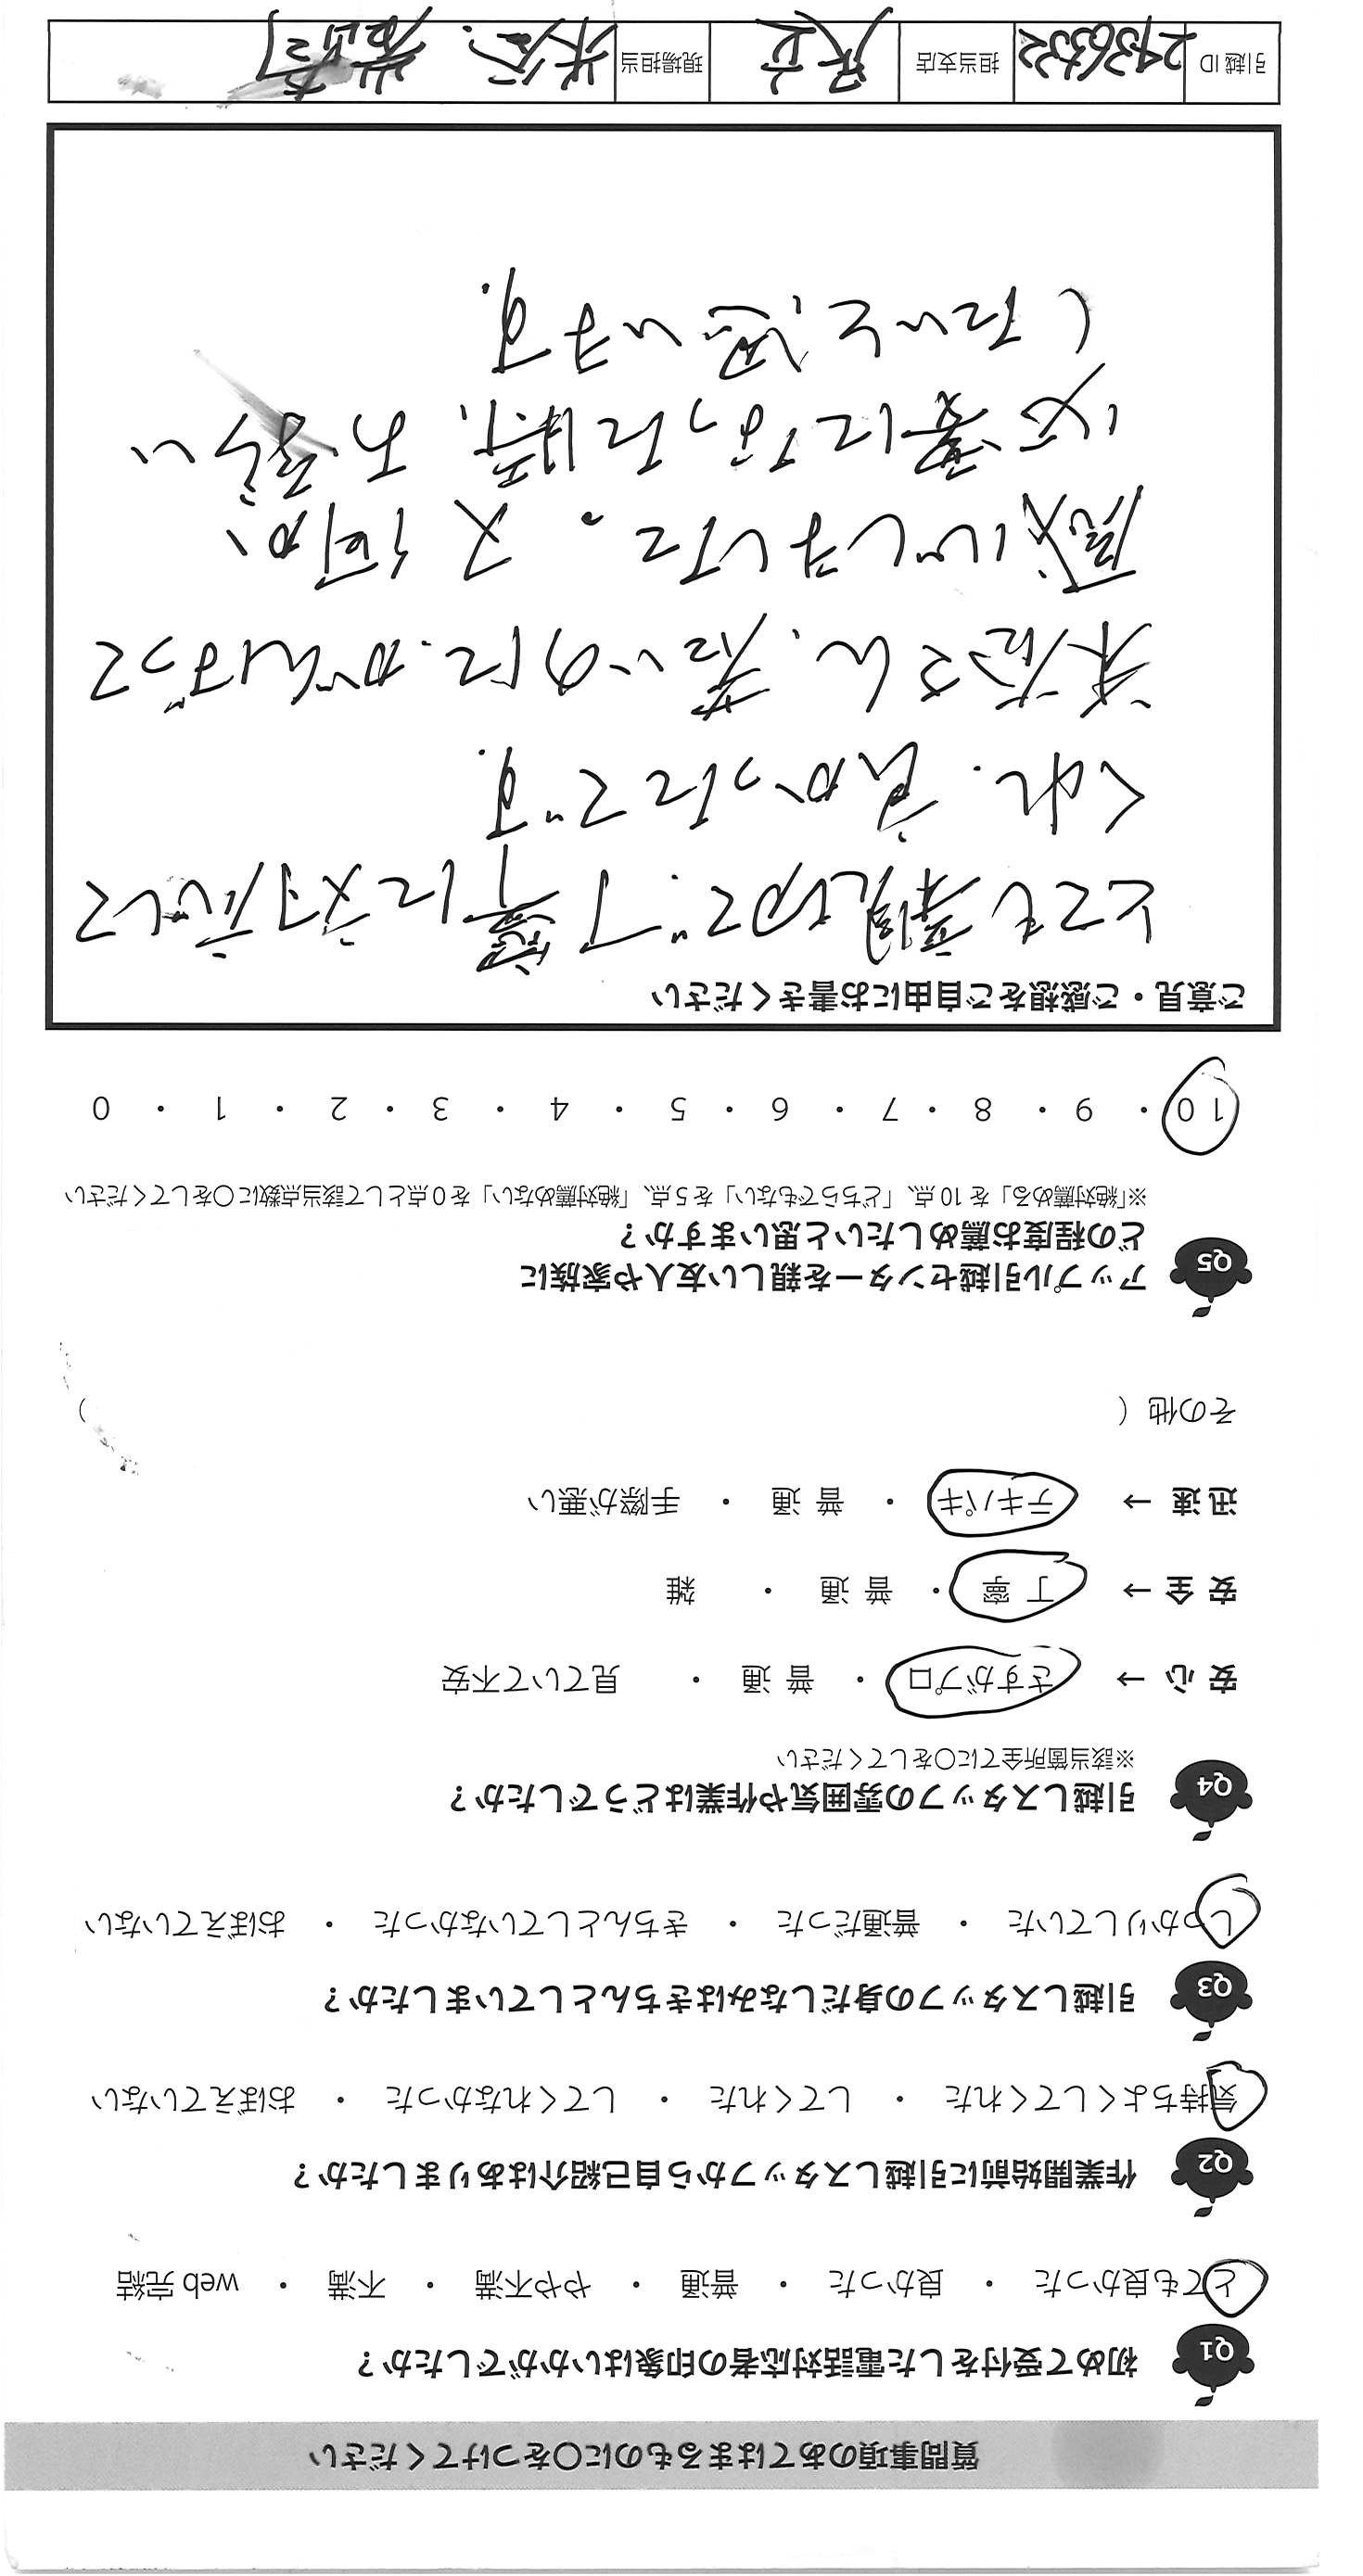 質問事項のあてはまるものに○をつけてください
Q1 初めて受付をした電話対応者の印象はいかがでしたか？
とても良かった ・ 良かった ・ 普通 ・ やや不満 ・ 不満 ・ web 完結
Q2 作業開始前に引越しスタッフから自己紹介はありましたか？
気持ちよくしてくれた ・ してくれた ・ してくれなかった ・ おぼえていない
Q3 引越しスタッフの身だしなみはきちんとしていましたか？
しっかりしていた ・ 普通だった ・ きちんとしていなかった ・ おぼえていない
Q4 引越しスタッフの雰囲気や作業はどうでしたか？
※該当箇所全てに○をしてください
安 心 → さすがプロ ・ 普 通 ・ 見ていて不安
安 全 → 丁 寧 ・ 普 通 ・ 雑
迅 速 → テキパキ ・ 普 通 ・ 手際が悪い
その他（ ）
Q5 アップル引越センターを親しい友人や家族に
どの程度お薦めしたいと思いますか？
※「絶対薦める」を 10 点、「どちらでもない」を 5 点、「絶対薦めない」を 0 点として該当点数に○をしてください
10 ・ 9 ・ 8 ・ 7 ・ 6 ・ 5 ・ 4 ・ 3 ・ 2 ・ 1 ・ 0
ご意見・ご感想をご自由にお書きください
とても親切で、丁寧に対応して
くれ、良かったです。
米谷さん、若いのに、がんばって
感心しました。又何か、
必要になった時、お願い
したいと思います。
引越 ID 担当支店 足立 現場担当 米谷、